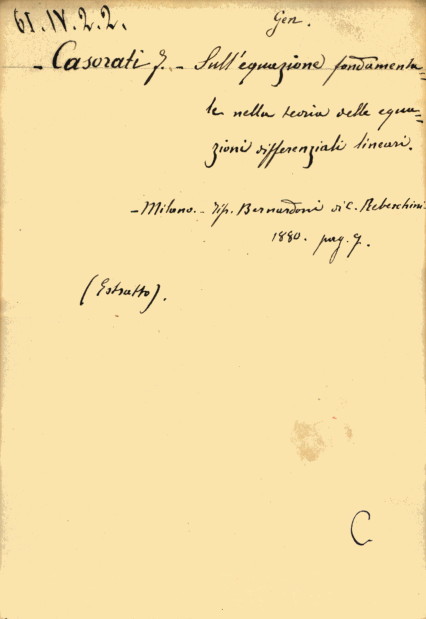 61. IV. 2. 2.
Gen.
- Casorati F. - Sull'equazione fondamenta=
le nella teoria delle equa=
zioni differenziali lineari.
- Milano. - Tip. Bernardoni di C. Rebeschini.
1880. pag. 7.
(Estratto).
C